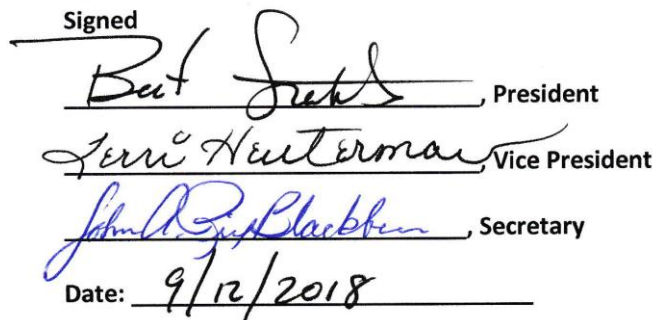 Signed
Bert , President
Terri Heuterman , Vice President
John A. Blackburn , Secretary
Date: 9/12/2018